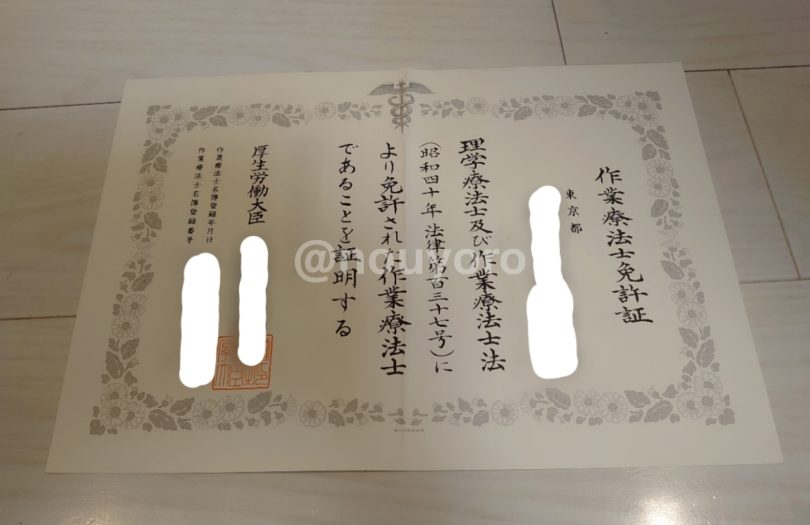 作業療法士免許証
東京都
理学療法士及び作業療法士法
(昭和四十年法律第百三十七号)に
より免許された作業療法士
であることを証明する
厚生労働大臣
作業療法士名簿登録年月日
作業療法士名簿登録番号